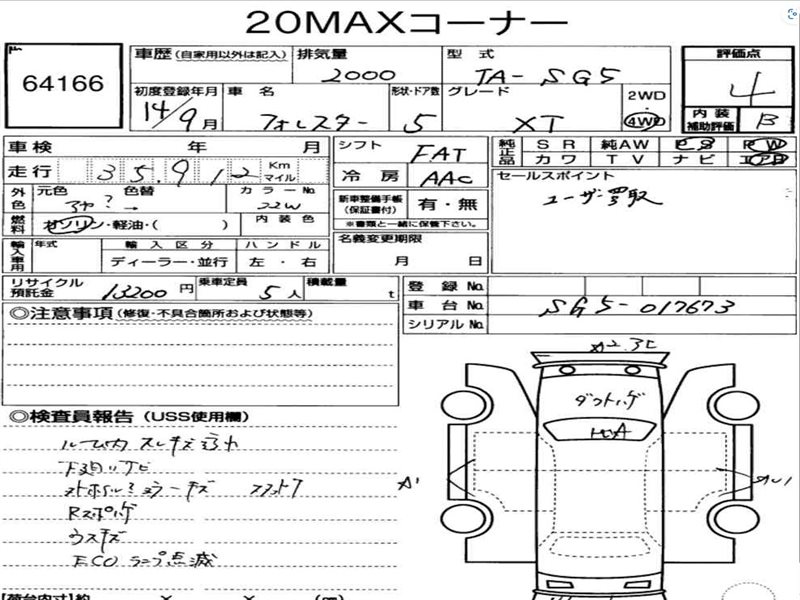 20MAXコーナー
64166
車歴 (自家用以外は記入) 排気量 2000 型式 TA-SG5 評価点 4
初度登録年月 14/9月 車名 フォレスター 形状・ドア数 5 グレード XT 2WD・4WD 内装補助評価 B
車検 年 月 シフト FAT 純正品 SR 純AW PS PW
カワ TV ナビ エアB
走行 35,912 Km マイル 冷房 AAC セールスポイント
ユーザー買取
外色 元色 色替 カラーNo. 22W 新車整備手帳(保証書付) 有・無
※書類と一緒に保管下さい。
燃料 ガソリン・軽油・( ) 内装色 名義変更期限 月 日
輸入車用 年式 輸入区分 ハンドル
ディーラー・並行 左・右
リサイクル預託金 13200円 乗車定員 5人 積載量 t
登録No.
車台No. SG5-017673
シリアルNo.
◎注意事項 (修復・不具合箇所および状態等)
◎検査員報告 (USS使用欄)
ルーム内 スレキズ
下廻りサビ
Rスポイラ
ウスキズ
ECOランプ点滅
A1